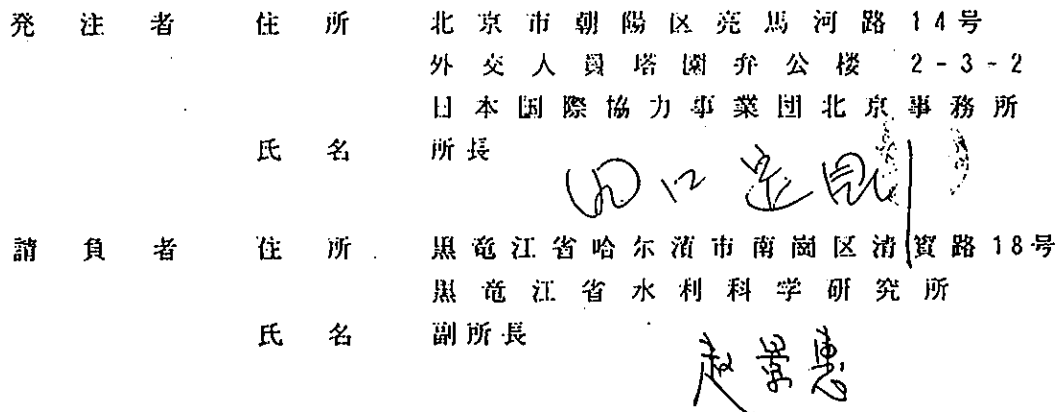 発注者 住所 北京市朝陽区亮馬河路14号
外交人員塔園弁公楼 2-3-2
日本国際協力事業団北京事務所
氏名 所長
請負者 住所 黒竜江省哈尔濱市南崗区清賓路18号
黒竜江省水利科学研究所
氏名 副所長
趙景惠